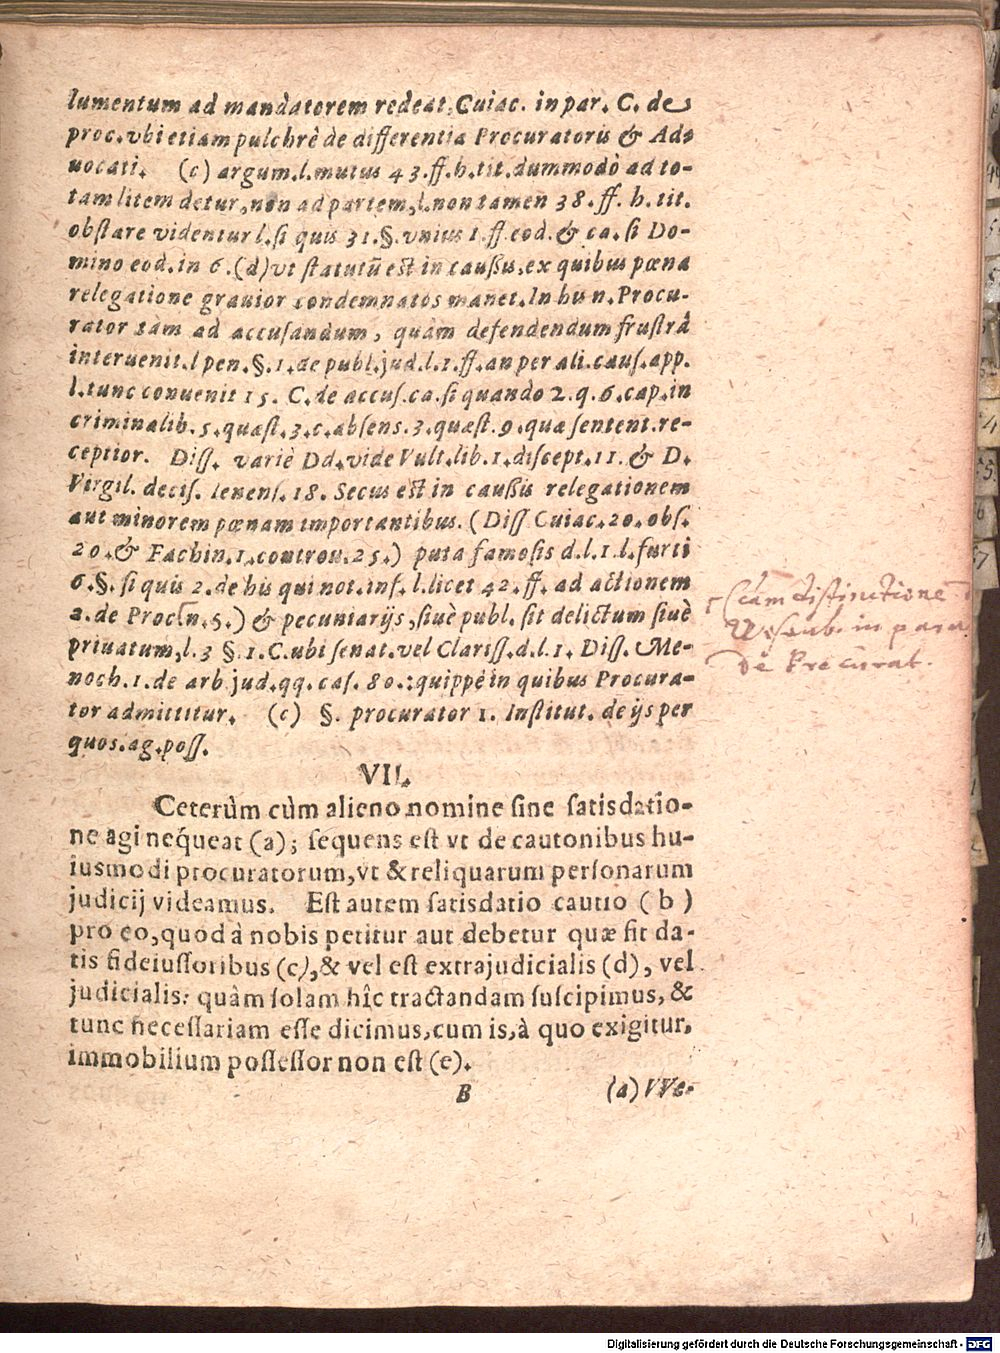 lumentum ad mandatorem redeat, Cuiac. in par. C. de
proc. vbi etiam pulchrè de differentia Procuratoris & Ad-
uocati. (c) argum. l. mutus 43. ff. h. tit. dummodò ad to-
tam litem detur, non ad partem, l. non tamen 38. ff. h. tit.
obstare videntur l. si quis 31. §. vnius 1. ff. eod. & ca. si Do-
mino eod. in 6. (d) vt statutũ est in caußis, ex quibus pœna
relegatione grauior condemnatos manet. In his n. Procu-
rator tàm ad accusandum, quàm defendendum frustrà
interuenit. l pen. §. 1. de publ. jud. l. 1. ff. an per ali. caus. app.
l. tunc conuenit 15. C. de accus. ca. si quando 2. q. 6. cap. in
criminalib. 5. quæst. 3. c. absens. 3. quæst. 9. quæ sentent. re-
ceptior. Diss. variè Dd. vide Vult. lib. 1. discept. 11. & D.
Virgil. decis. Ienens. 18. Secus est in caußis relegationem
aut minorem pœnam importantibus. (Diss Cuiac. 20. obs.
20. & Fachin. 1. controu. 25.) puta famosis d. l. 1. l. furti
6. §. si quis 2. de his qui not. inf. l. licet 42. ff. ad actionem
2. de Proc [n. 5.) & pecuniarijs, siuè publ. sit delictum siuè
priuatum, l. 3 §. 1. C. ubi senat. vel Clariss. d. l. 1. Diss. Me-
noch. 1. de arb. jud. qq. cas. 80.: quippè in quibus Procura-
tor admittitur. (c) §. procurator 1. Institut. de ijs per
quos. ag. poss.
VII.
Ceterùm cùm alieno nomine sine satisdatio-
ne agi neq́ueat (a); sequens est vt de cautonibus hu-
iusmodi procuratorum, vt & reliquarum personarum
judicij videamus. Est autem satisdatio cautio (b)
pro eo, quod à nobis petitur aut debetur quæ fit da-
tis fideiussoribus (c), & vel est extrajudicialis (d), vel
judicialis: quàm solam hîc tractandam suscipimus, &
tunc necessariam esse dicimus, cum is, à quo exigitur,
immobilium possessor non est (e).
B (a) VVe-
[cum distinctione
Wesenb. in para
de Procurat.
Digitalisierung gefördert durch die Deutsche Forschungsgemeinschaft - DFG